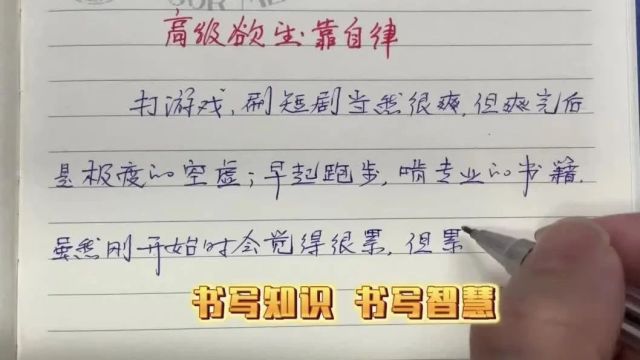 高级欲望靠自律
打游戏,刷短剧当然很爽,但爽完后
是极度的空虚;早起跑步,啃专业的书籍,
虽然刚开始时会觉得很累,但累
书写知识 书写智慧